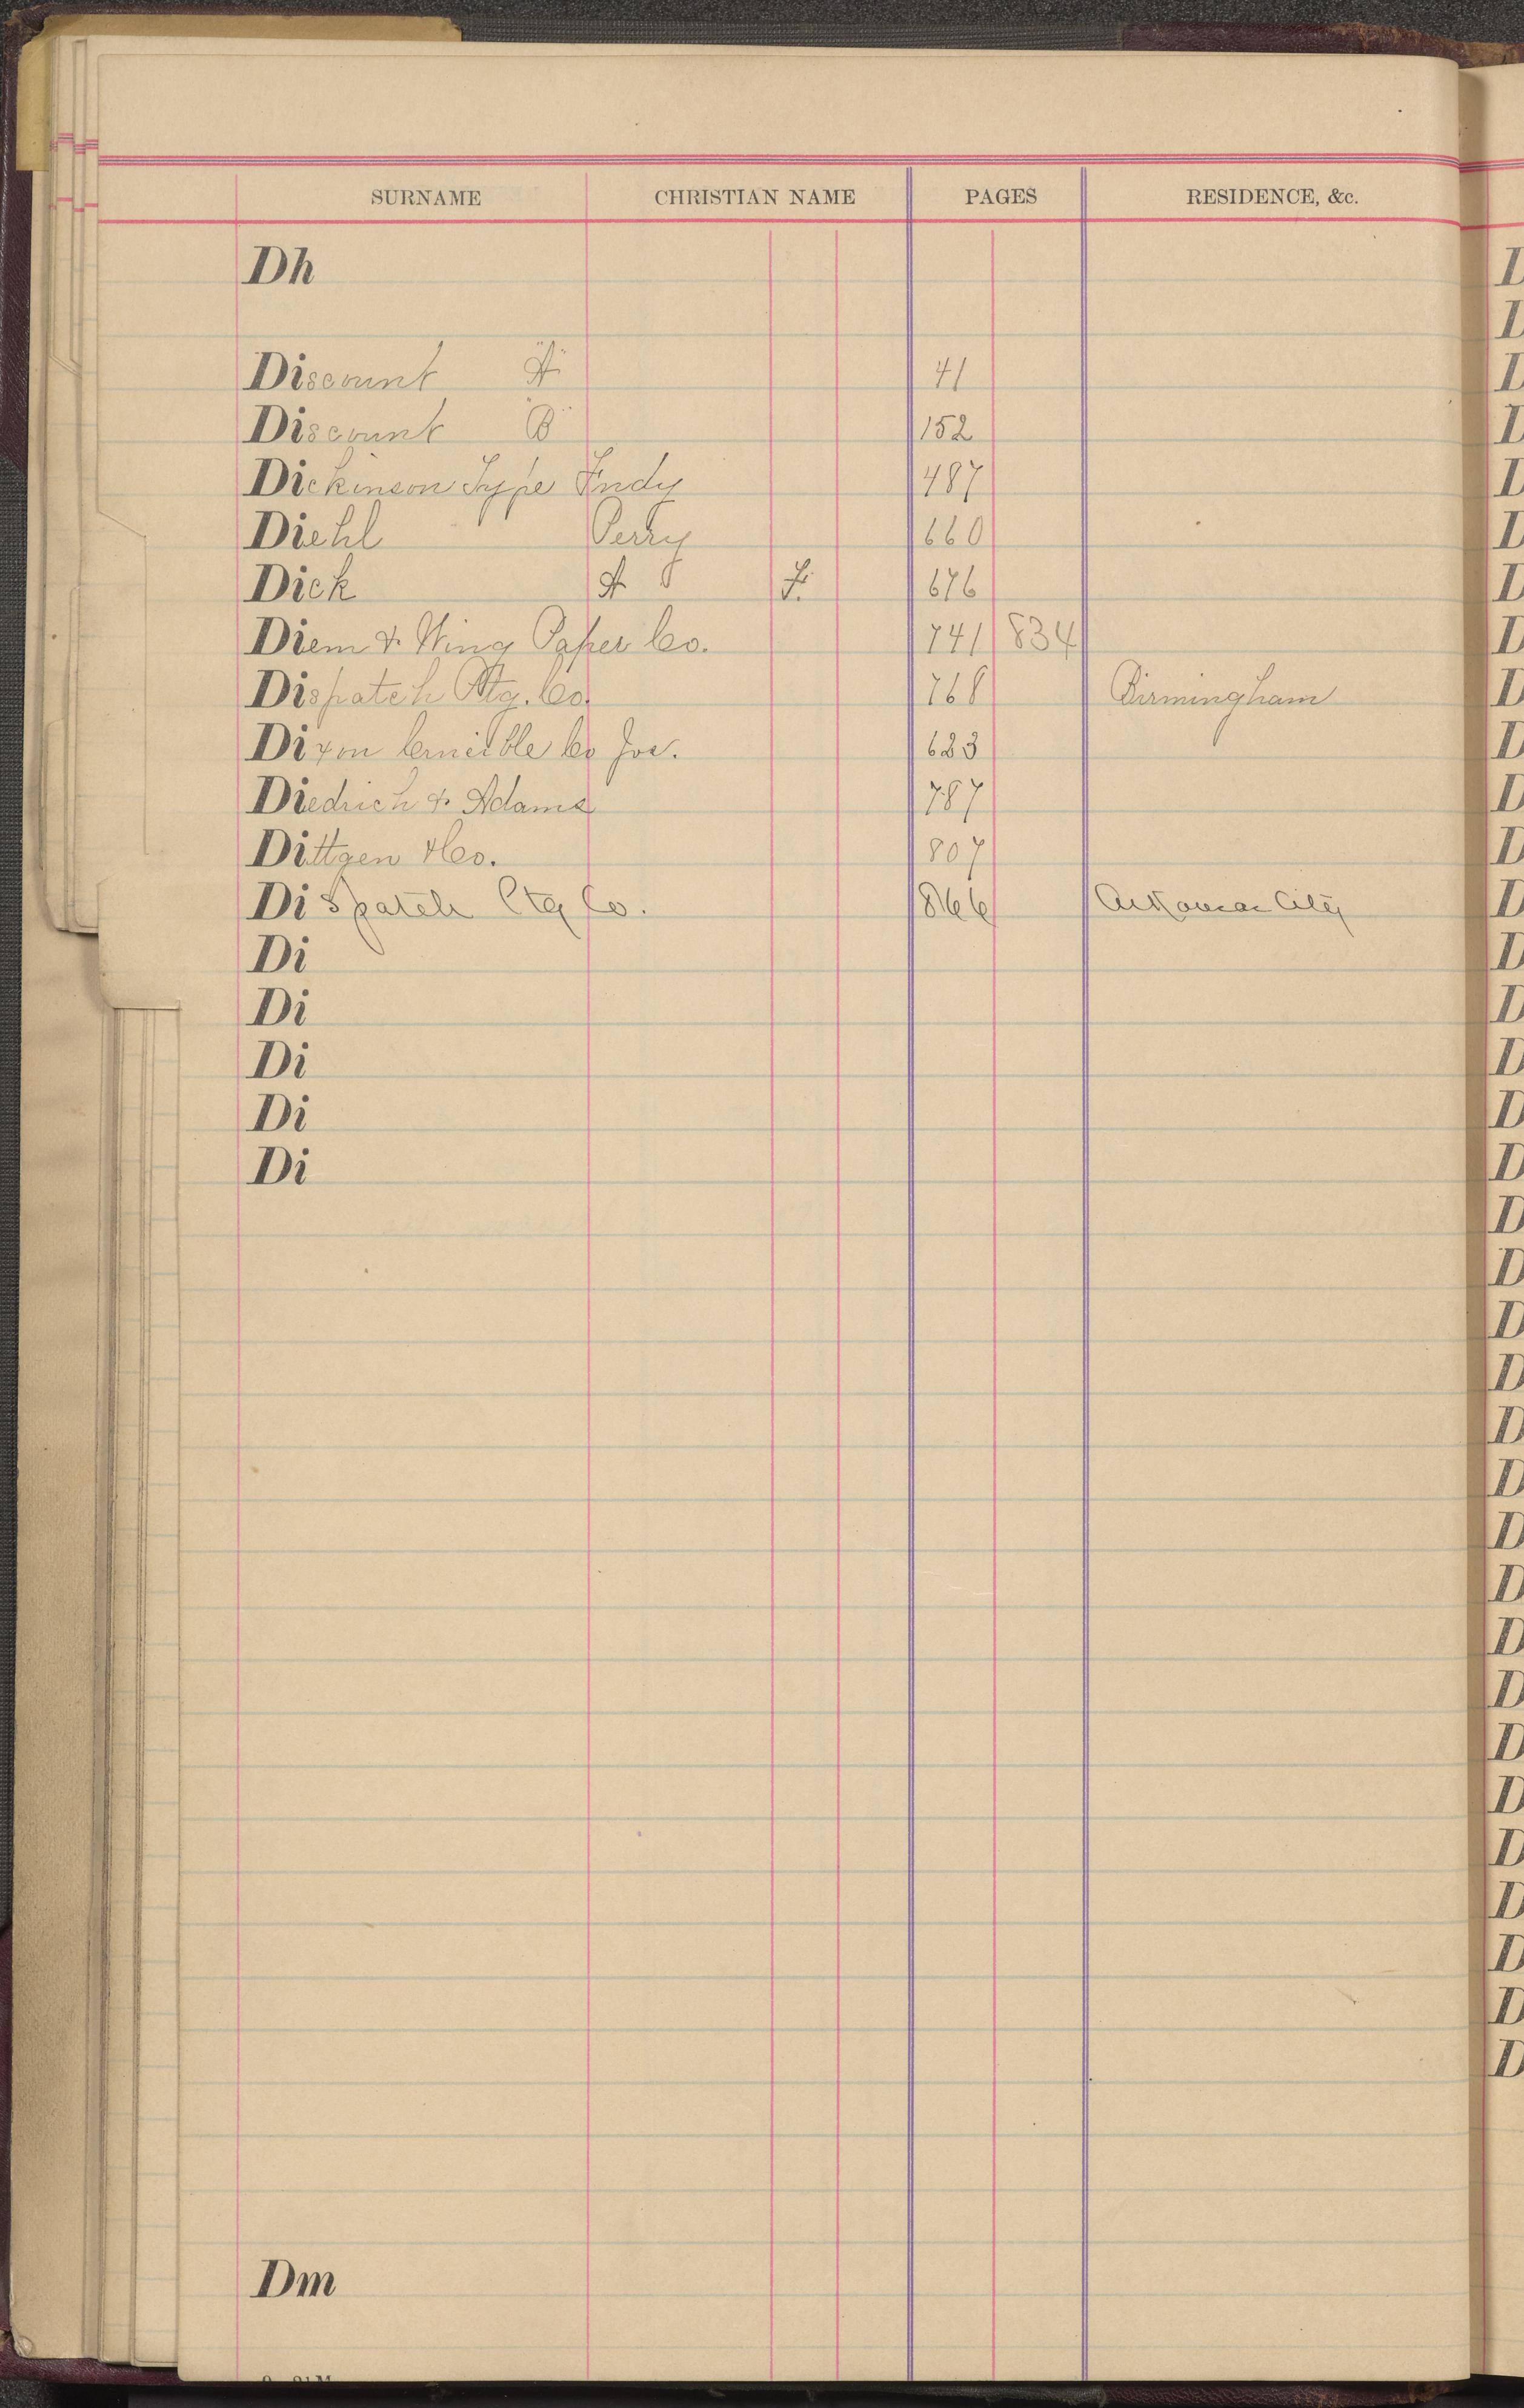 SURNAME CHRISTIAN NAME PAGES RESIDENCE, &c.
Dh
Discount "A" 41
Discount "B" 152
Dickinson Type Fndy 487
Diehl Perry 660
Dick A F. 676
Diem & Wing Paper Co. 741 834
Dispatch Ptg. Co. 768 Birmingham
Dixon Crucible Co Jos. 683
Diedrich & Adams 787
Dittgen & Co. 807
Dispatch Ptg Co. 866 Arkansas City
Di
Di
Di
Di
Di
Dm